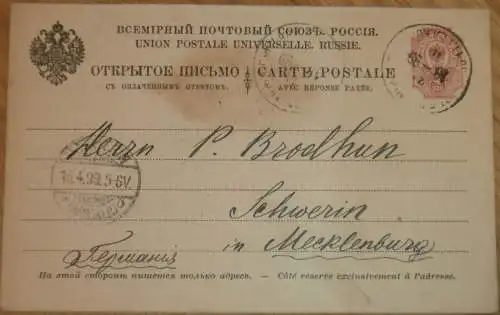 ВСЕМІРНЫЙ ПОЧТОВЫЙ СОЮЗЪ. РОССІЯ.
UNION POSTALE UNIVERSELLE. RUSSIE.
ОТКРЫТОЕ ПИСЬМО CARTE POSTALE
СЪ ОПЛАЧЕННЫМЪ ОТВѢТОМЪ. AVEC RÉPONSE PAYÉE.
Herrn P. Brodhun
Schwerin
in Mecklenburg
Германія
На этой сторонѣ пишется только адресъ. — Côté réservé exclusivement à l'adresse.
4.99.5-6V.